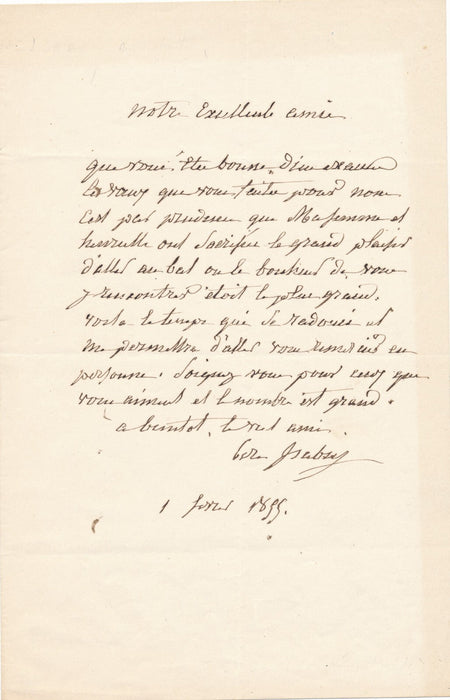 notre Excellente amie
que vous êtes bonne, dieu exauce
les vœux que vous faite pour nous
C'est par prudence que Ma femme et
henriette ont Sacrifié le grand plaisir
d'aller au bal ou le bonheur de vous
y rencontrer étoit le plus grand.
voila le temps qui Se radouci et
me permettra d'aller vous remercier en
personne. Soignez vous pour ceux que
vous aiment et le nombre est grand.
a bientot. le vieil ami.
Isabey
1 fevrier 1855.